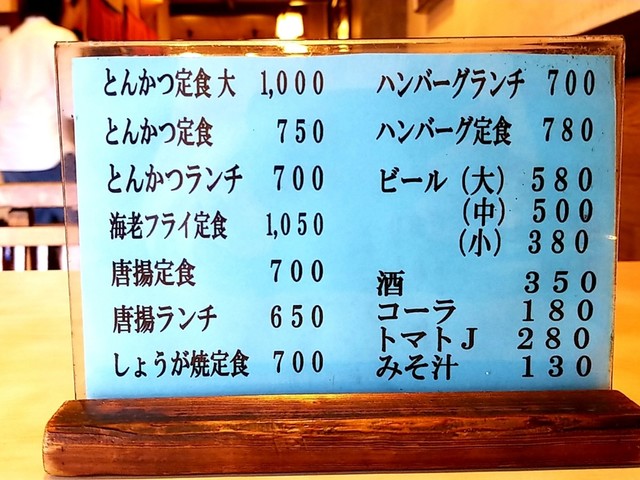 とんかつ定食大 1,000
とんかつ定食 750
とんかつランチ 700
海老フライ定食 1,050
唐揚定食 700
唐揚ランチ 650
しょうが焼定食 700
ハンバーグランチ 700
ハンバーグ定食 780
ビール(大) 580
(中) 500
(小) 380
酒 350
コーラ 180
トマトJ 280
みそ汁 130